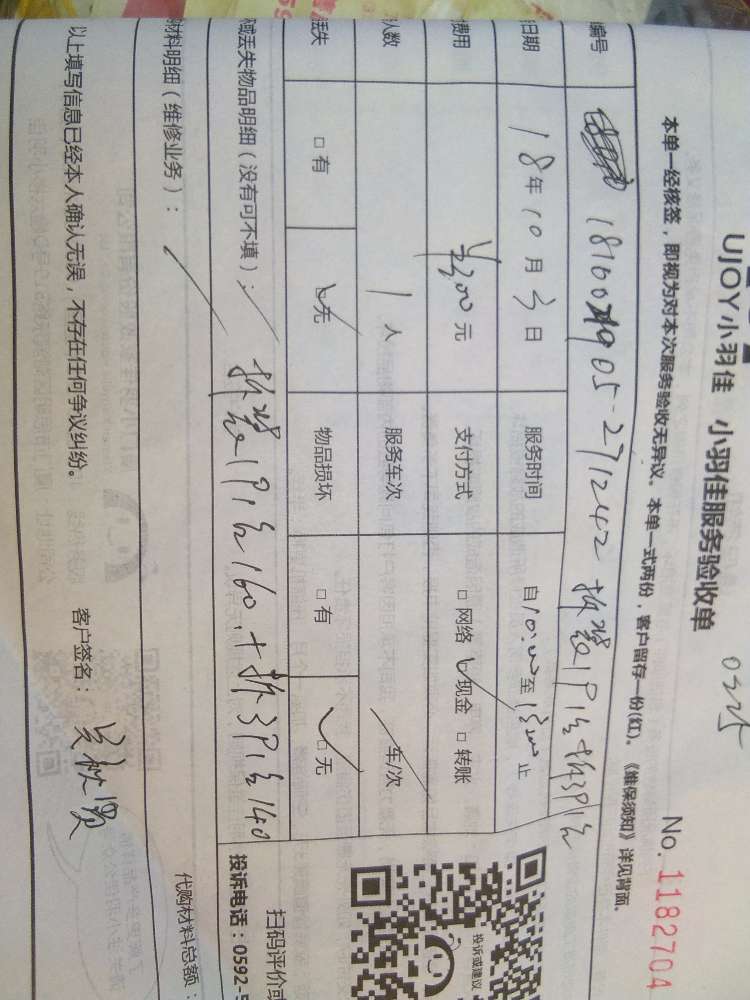 UJOY小羽佳 小羽佳服务验收单
0325
No. 1182704
本单一经核签，即视为对本次服务验收无异议。本单一式两份，客户留存一份(红)。《维保须知》详见背面。
编号 拆装1P1台+拆3P1台
日期 18年10月3日 服务时间 自10:00至 止
费用 300元 支付方式 □网络 □现金 □转账
人数 1人 服务车次 车/次
丢失 □有 □无 物品损坏 □有 □无
或丢失物品明细（没有可不填）：
拆装1P1台160.+拆3P1台140
材料明细（维修业务）：
代购材料总额：
以上填写信息已经本人确认无误，不存在任何争议纠纷。 客户签名：
投诉或建议
扫码评价或
投诉电话：0592-5